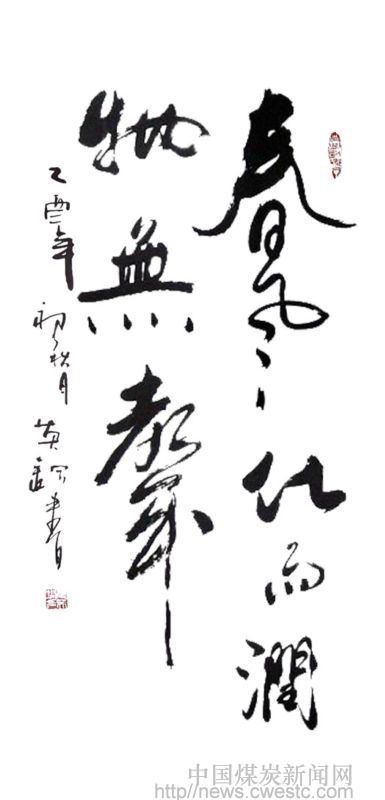 春風化雨潤
物無聲
乙酉年初秋月
中国煤炭新闻网
http://news.cwestc.com